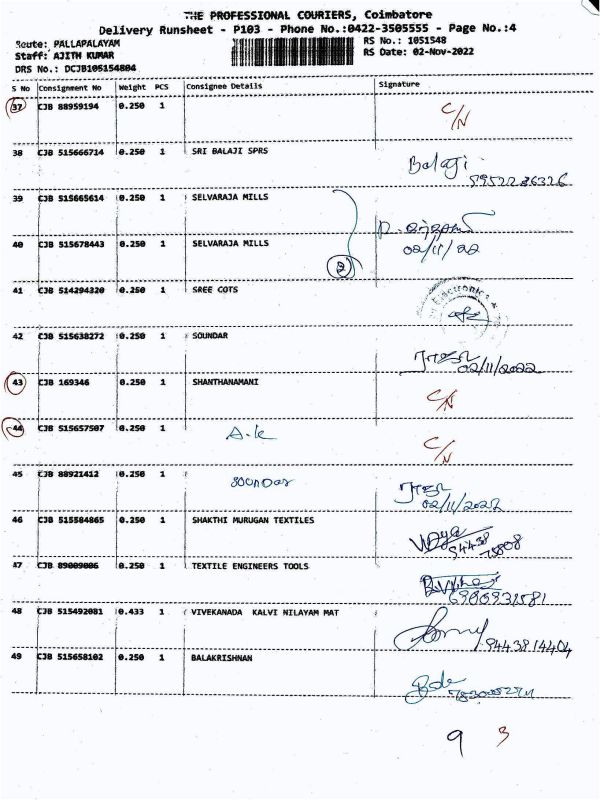 THE PROFESSIONAL COURIERS, Coimbatore
Delivery Runsheet - P103 - Phone No.:0422-3505555 - Page No.:4
Route: PALLAPALAYAM
RS No.: 1051548
Staff: AJITH KUMAR
RS Date: 02-Nov-2022
DRS No.: DCJB105154804
S No Consignment No Weight PCS Consignee Details Signature
37 CJB 88959194 0.250 1 C/N
38 CJB 515666714 0.250 1 SRI BALAJI SPRS
Balaji
39 CJB 515665614 0.250 1 SELVARAJA MILLS
40 CJB 515678443 0.250 1 SELVARAJA MILLS
02/11/22
2
41 CJB 514294320 0.250 1 SREE COTS
Electronics
42 CJB 515638272 0.250 1 SOUNDAR
02/11/2022
43 CJB 169346 0.250 1 SHANTHANAMANI
C/N
44 CJB 515657507 0.250 1 A.K C/N
45 CJB 88921412 0.250 1 soundar
02/11/2022
46 CJB 515584865 0.250 1 SHAKTHI MURUGAN TEXTILES
Vidya
94438
75808
47 CJB 89009006 0.250 1 TEXTILE ENGINEERS TOOLS
48 CJB 515492081 0.433 1 VIVEKANADA KALVI NILAYAM MAT
9443814404
49 CJB 515658102 0.250 1 BALAKRISHNAN
9 3